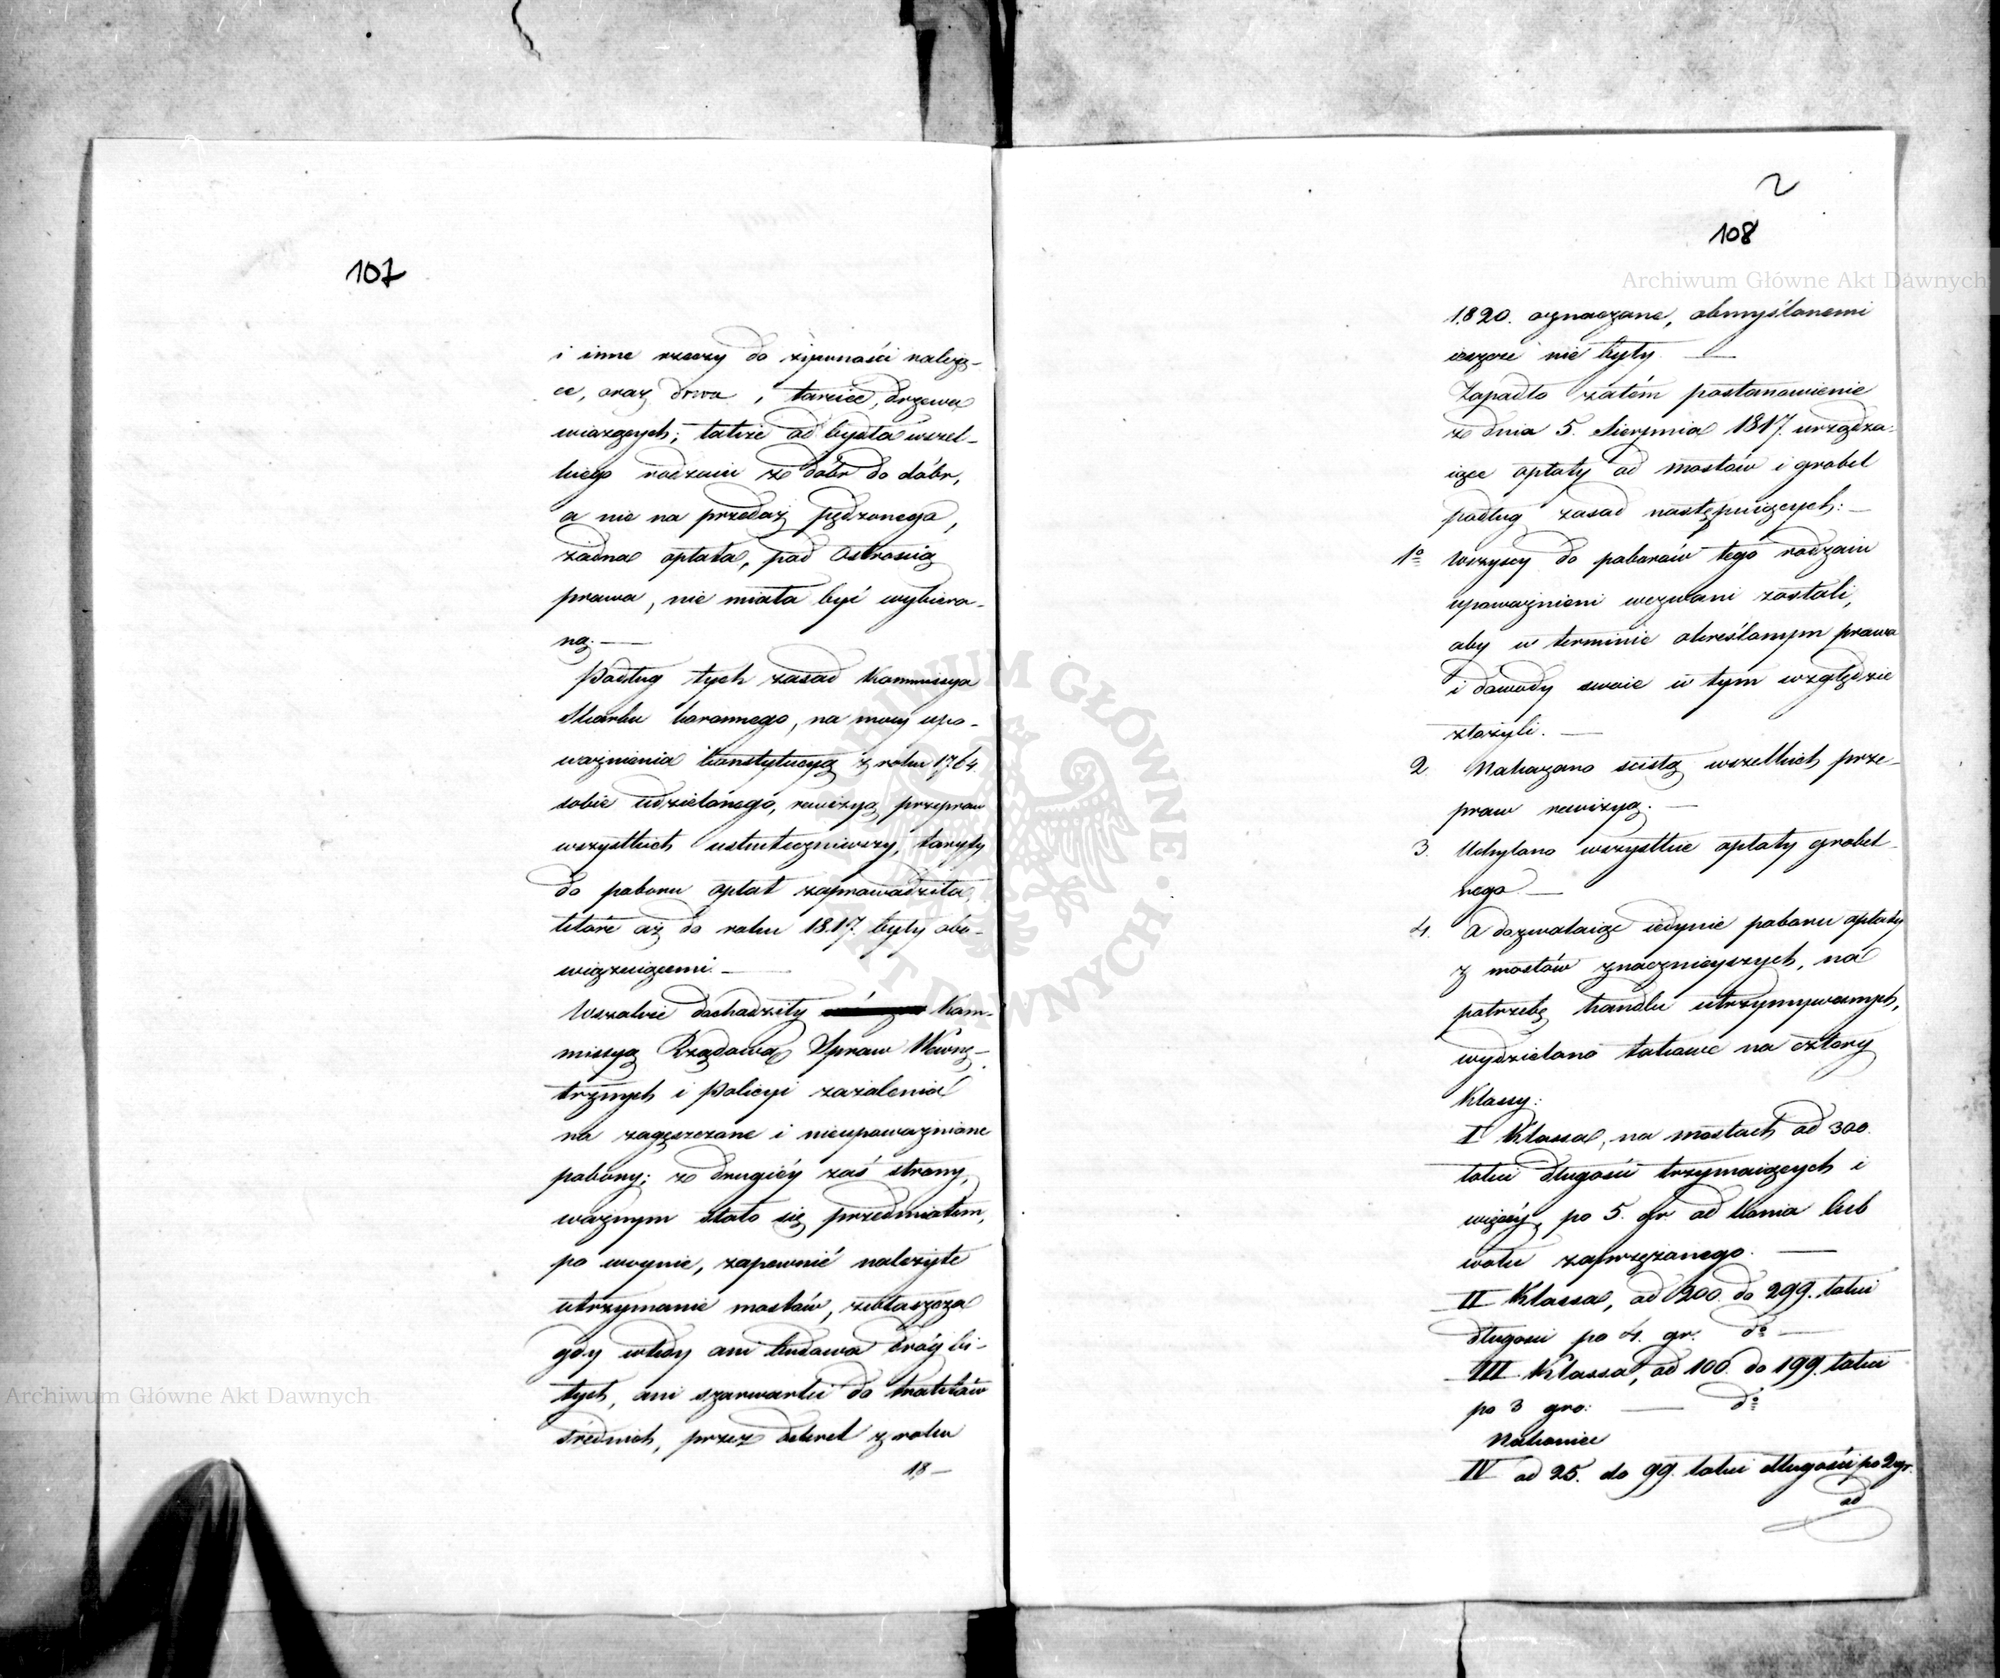 107
i inne rzeczy do żywności należą-
ce, oraz drwa, tarcice, drzewa
wiozących; także od bydła wszel-
kiego rodzaiu z dóbr do dóbr,
a nie na przedaż pędzonego,
żadna opłata, pod ostrością
prawa, nie miała być wybiera-
ną.—
Podług tych zasad Kommissya
Skarbu koronnego, na mocy upo-
ważnienia konstytucyą z roku 1764
sobie udzielonego, rewizyą przepraw
wszystkich uskuteczniwszy, taryffy
do poboru opłat zaprowadziła,
które aż do roku 1817. były obo-
wiązuiącemi.—
Wszakże dochodziły Kom-
missyą Rządową Spraw Wewnę-
trznych i Policyi zażalenia
na zagęszczone i nieupoważnione
pobory; z drugiéy zaś strony,
ważnym stało się przedmiotem,
po woynie, zapewnić należyte
utrzymanie mostów, zwłaszcza
gdy wtedy ani budowa dróg bi-
tych, ani szarwarki do traktów
średnich, przez dekret z roku
18—
2
108
1820. oznaczone, obmyślonemi
ieszcze nie były.—
Zapadło zatém postanowienie
z dnia 5. Sierpnia 1817. urządza-
iące opłaty od mostów i grobel
podług zasad następuiących:—
1º Wszyscy do poborów tego rodzaiu
upoważnieni wezwani zostali,
aby w terminie określonym prawa
i dowody swoie w tym względzie
złożyli.—
2. Nakazano ścisłą wszelkich prze-
praw rewizyą.—
3. Uchylono wszystkie opłaty grobel-
nego.—
4. A dozwalaiąc iedynie poboru opłaty
z mostów znacznieyszych, na
potrzebę handlu utrzymywanych,
wydzielono takowe na cztery
Klassy:
I Klassa, na mostach od 300.
łokci długości trzymaiących i
więcéy po 5. gr. od konia lub
wołu zaprzężonego.—
II Klassa, od 200. do 299. łokci
długości po 4. gr. dº—
III Klassa, od 100. do 199. łokci
po 3 gro: — dº
Nakoniec
IV od 25. do 99. łokci długości po 2 gr.
od
Archiwum Główne Akt Dawnych
Archiwum Główne Akt Dawnych
ARCHIWUM GŁÓWNE AKT DAWNYCH